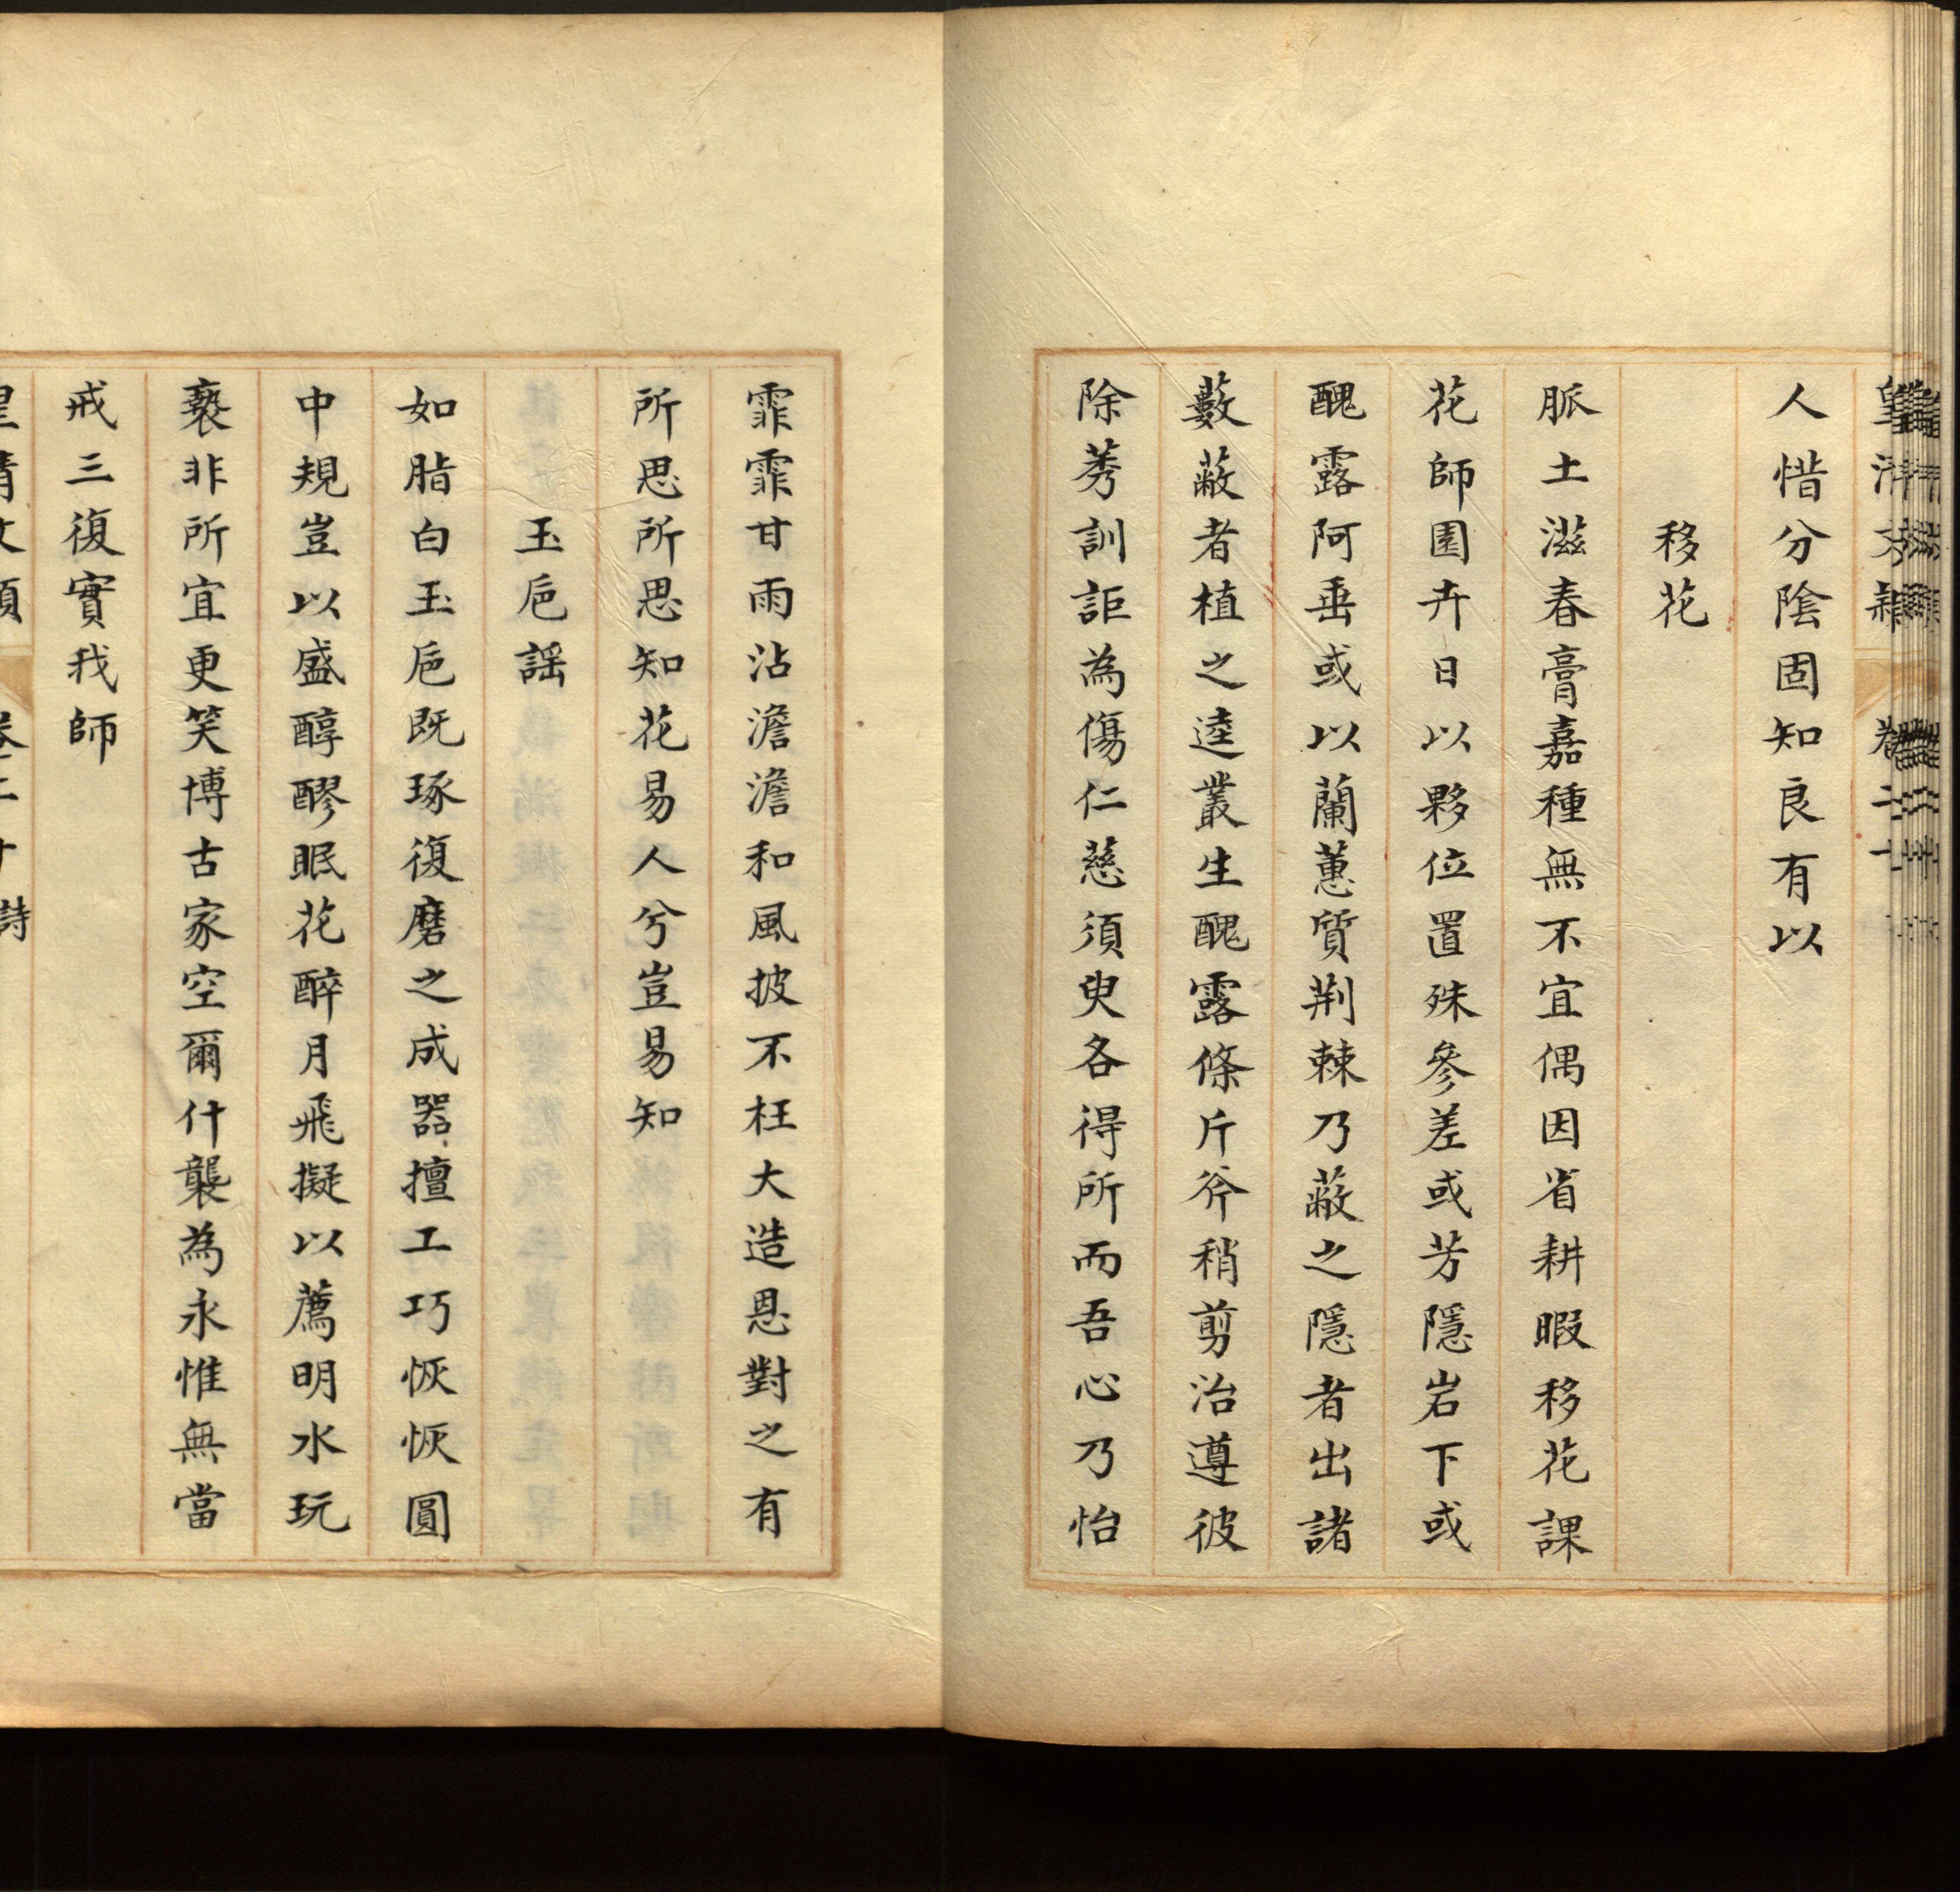 人惜分陰固知良有以
移花
脈土滋春膏嘉種無不宜偶因省耕暇移花課
花師園卉日以夥位置殊參差或芳隱岩下或
醜露阿垂或以蘭蕙質荆棘乃蔽之隱者出諸
藪蔽者植之逵叢生醜露條斤斧稍剪治遵彼
除莠訓詎為傷仁慈須臾各得所而吾心乃怡
霏霏甘雨沾澹澹和風披不枉大造恩對之有
所思所思知花易人兮豈易知
玉巵謡
如脂白玉巵既琢復磨之成器擅工巧恢恢圓
中規豈以盛醇醪眠花醉月飛擬以薦明水玩
褻非所宜更笑博古家空爾什襲為永惟無當
戒三復實我師